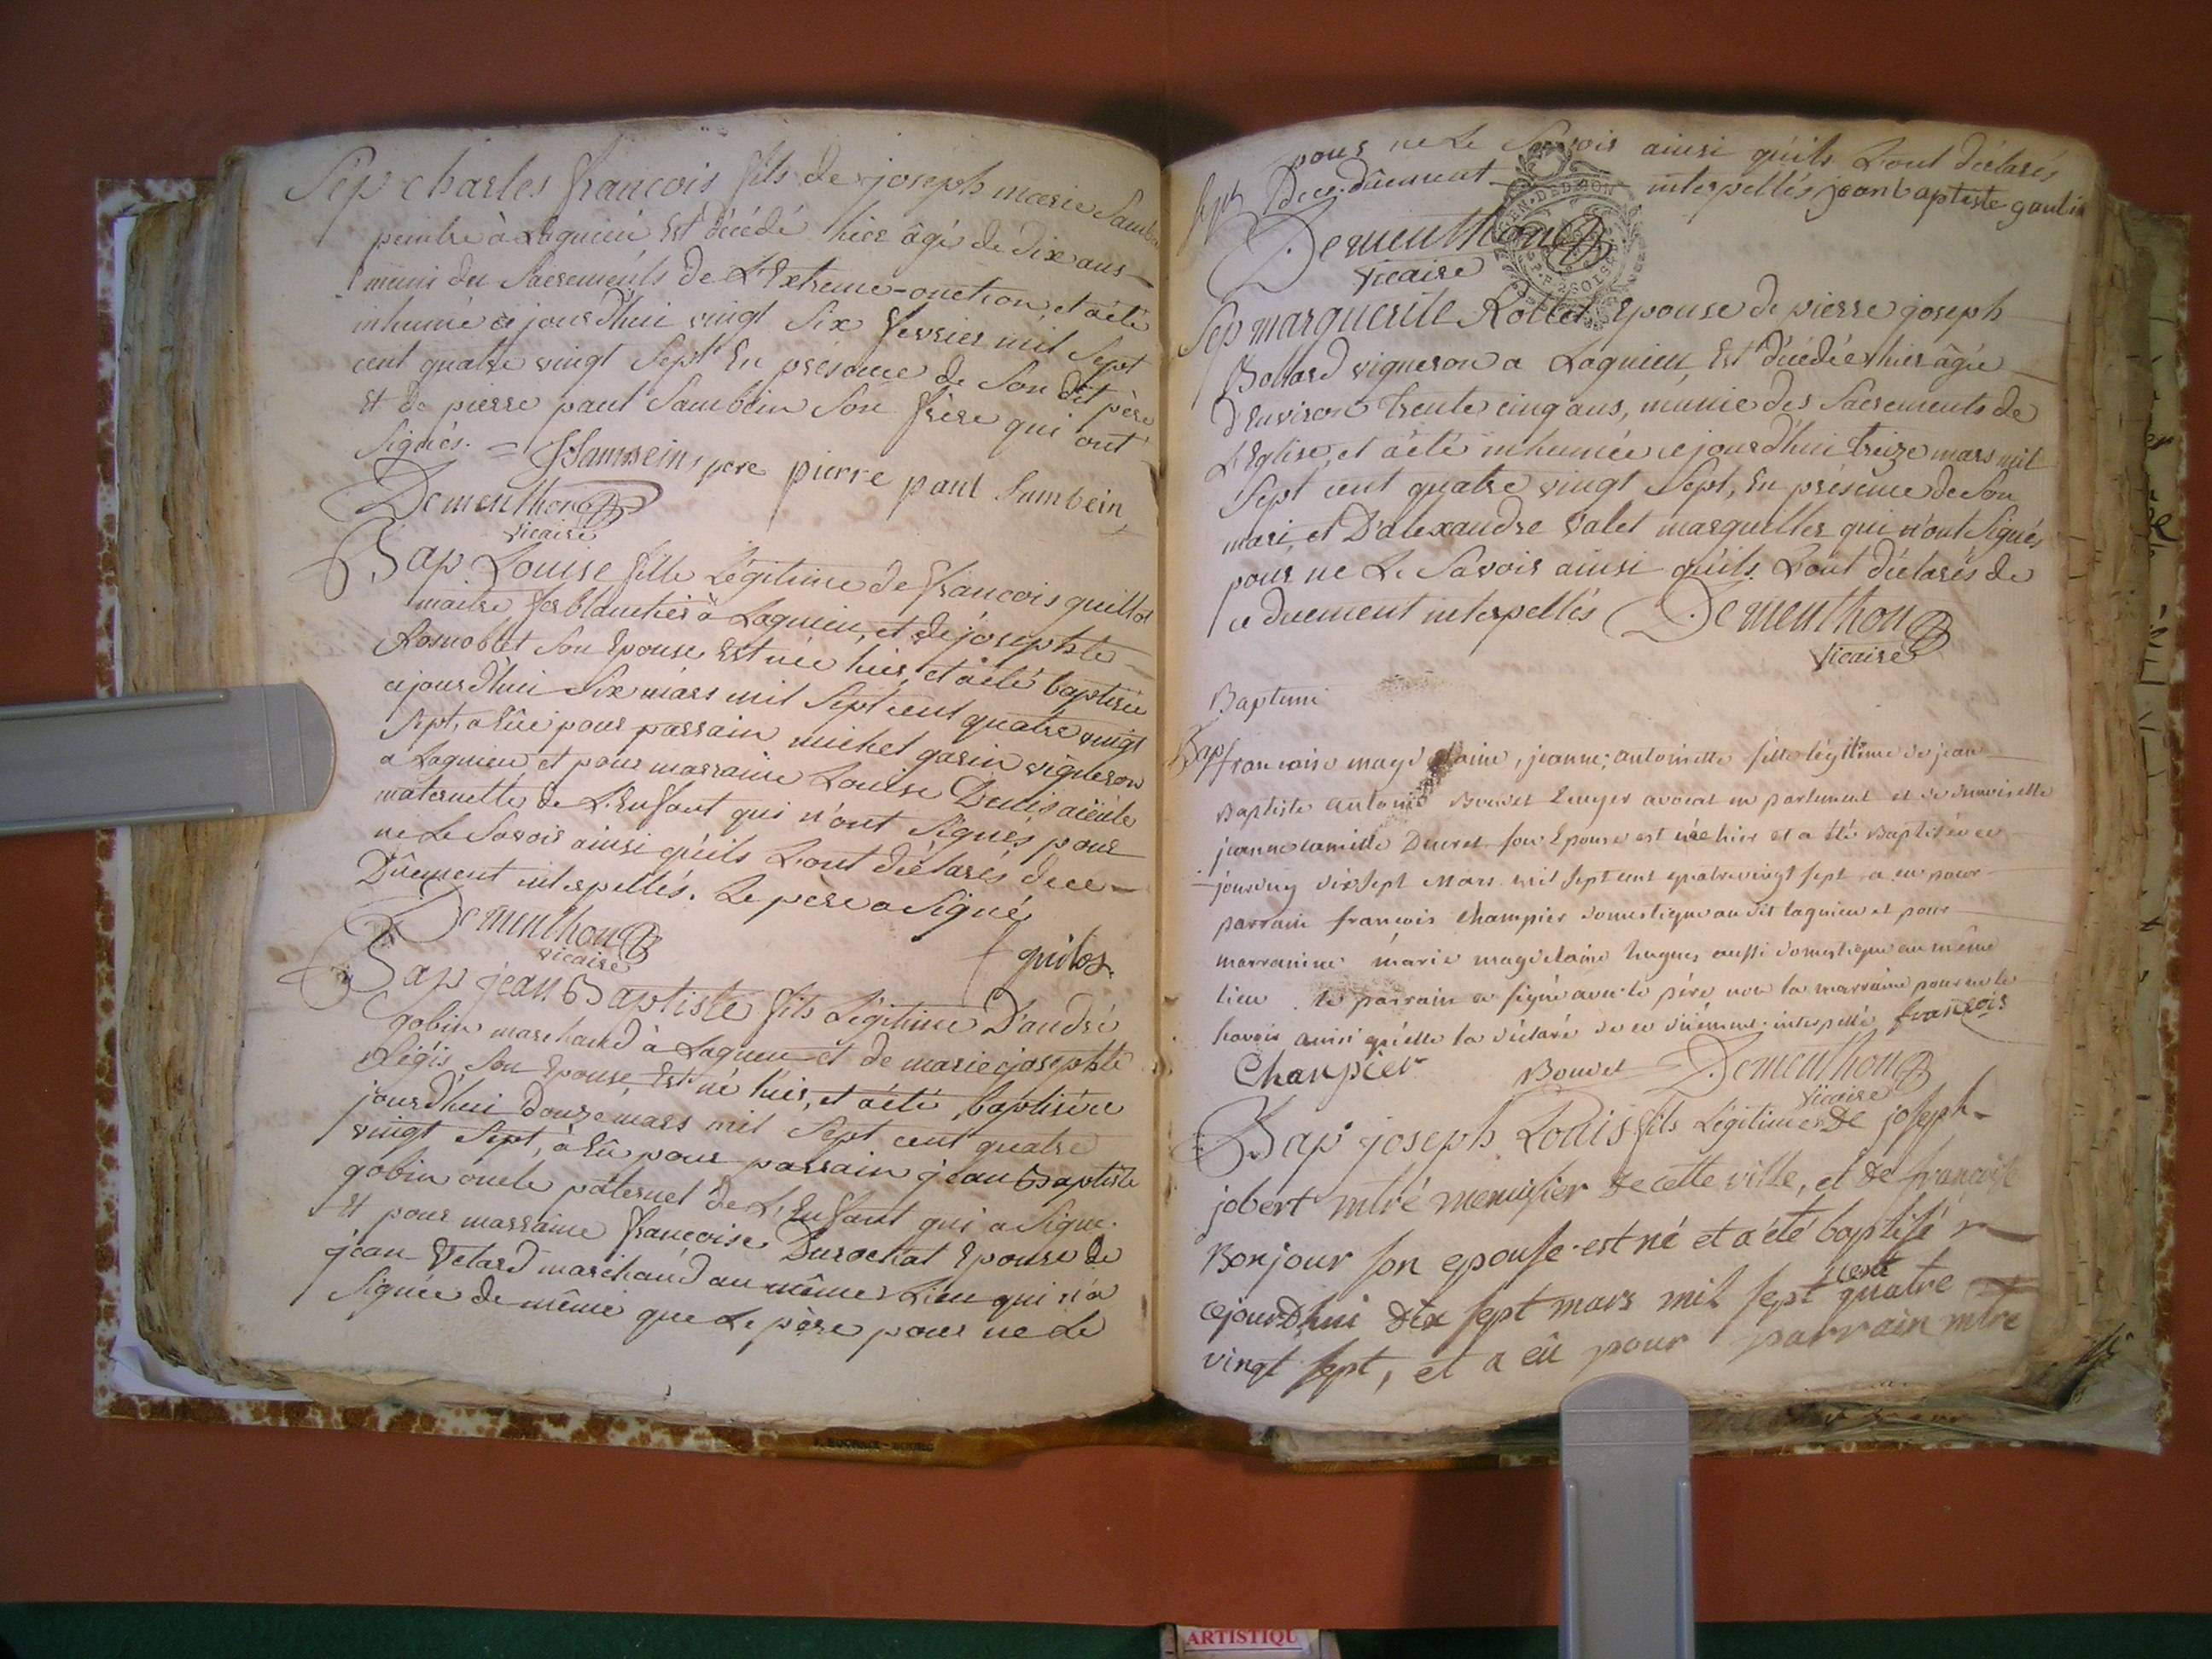 Sep charles francois fils de joseph marie Sambein
peintre à Lagnieu Est décédé hier âgé de dix ans
muni du Sacrements de L'Extreme-onction, et a été
inhumé ce jourd'hui vingt Six fevrier mil Sept
cent quatre vingt Sept En présence de Son dit père
Et de pierre paul Sambein Son frère qui ont
Signés. = Sambein père pierre paul Sambein
Dementhon
vicaire
Bap Louise fille Légitime de francois quillot
maitre ferblantier à Lagnieu, et de josephte
Son Epouse Est née hier, et a été baptisée
cejourd'hui Six mars mil Sept cent quatre vingt
Sept, a Eûe pour parrain michel garin vigneron
a Lagnieu, et pour marraine Louise Denis aïeule
maternelle de L'Enfant qui n'ont Signés pour
ne Le Savoir ainsi qu'ils L'ont déclarés de ce
Dûement interpellés. Le pere a Signé
Dementhon
vicaire
Bap jean Baptiste fils Légitime D'andré
gobin marchand à Lagnieu et de marie josephte
Régis Son Epouse, Est né hier, et a été baptisé ce
jourd'hui douze mars mil Sept cent quatre
vingt Sept, à Eû pour parrain jean Baptiste
gobin oncle paternel de L'Enfant qui a Signé
Et pour marraine francoise Durochat Epouse de
jean marchand au même Lieu qui n'a
Signée de même que Le père pour ne Le
pour ne Le Savoir ainsi qu'ils L'ont déclarés
Dece dûement interpellés jean baptiste
Dementhon
vicaire
Sep marguerite Rollet Epouse de pierre joseph
vigneron a Lagnieu, Est décédée hier âgée
d'Environ trente cinq ans, munie des Sacrements de
L'Eglise, et a été inhumée cejourd'hui treize mars mil
Sept cent quatre vingt Sept, En présence de Son
mari, et D'alexandre valet marguillier qui n'ont Signés
pour ne Le Savoir ainsi qu'ils L'ont déclarés de
ce duement interpellés Dementhon
vicaire
Bapteme
Bap francoise magdelaine, jeanne, antoinette fille légitime de jean
Baptiste antoine Bouvet Ecuyer avocat en parlement et de demoiselle
jeanne camille son Epouse est née hier et a été Baptisée ce
jourduy dix Sept Mars mil Sept cent quatrevingt sept a eu pour
parrain françois Champier domestique au dit lagnieu et pour
marranine marie magdelaine hugues aussi domestique au même
lieu le parrain a signé avec le père non la marraine pour ne le
scavoir ainsi qu'elle la déclaré de ce dûement interpellé françois
Champier Bouvet Dementhon
vicaire
Bap joseph Louis fils Légitime De joseph
jobert mtre menuisier de cette ville, et de francoise
Bonjour son epouse est né et a été baptisé
cejourdhui dix sept mars mil sept cent quatre
vingt sept, et a eû pour parrain mtre
ARTISTIQU